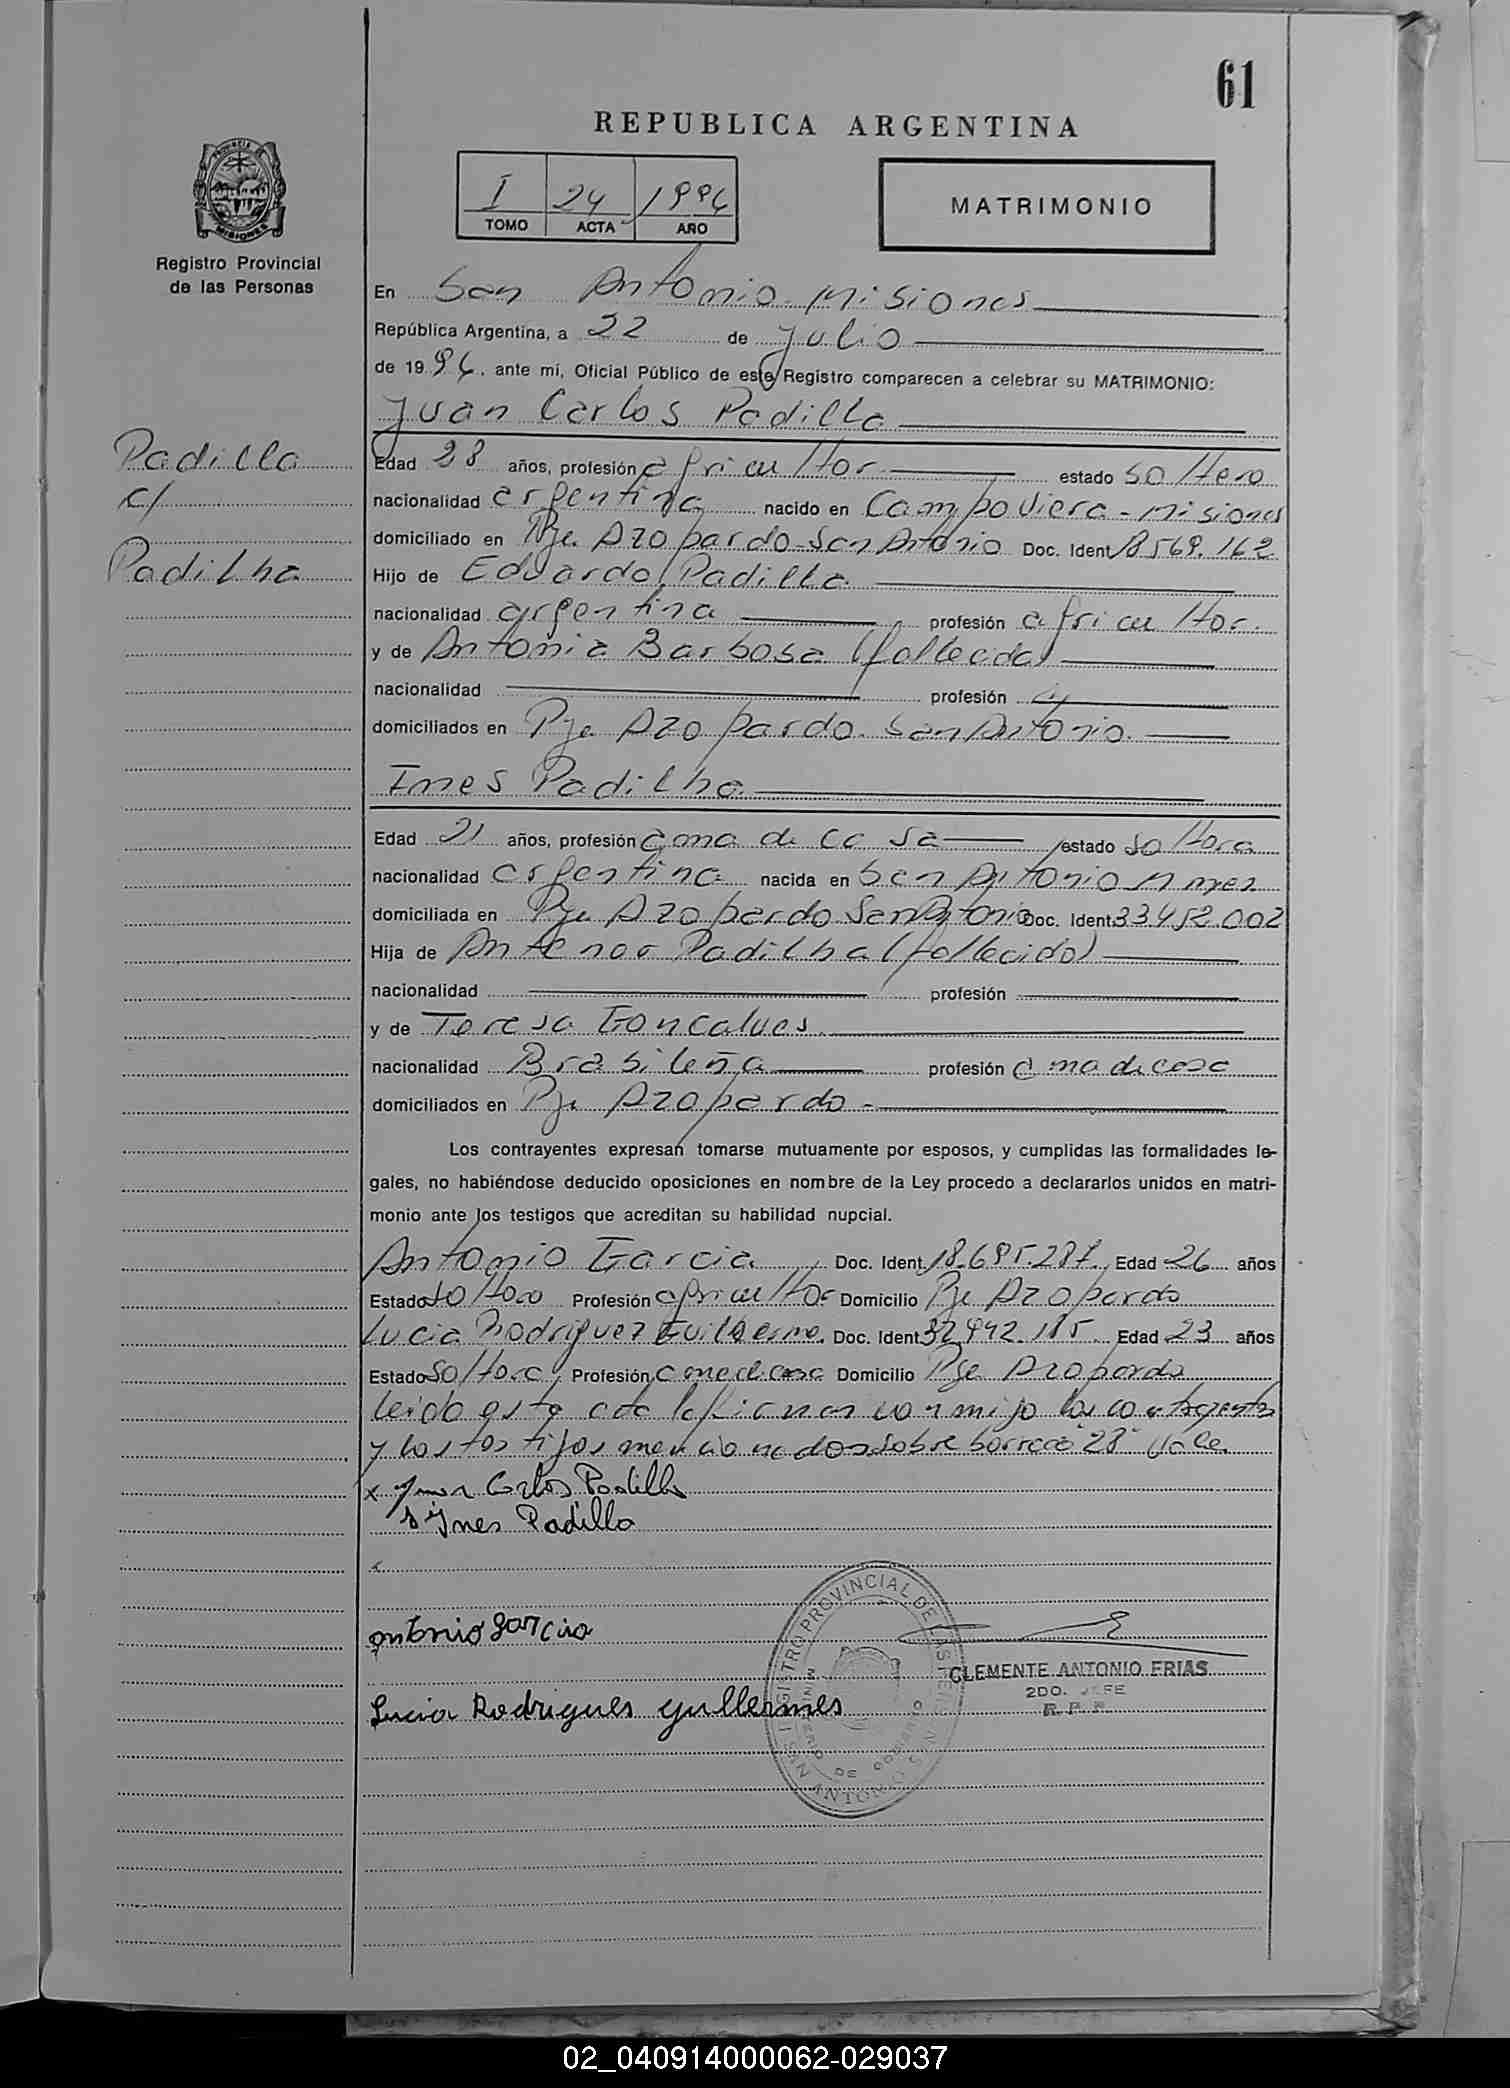 61
REPUBLICA ARGENTINA
I 24 1994
TOMO ACTA AÑO
MATRIMONIO
PROVINCIA DE MISIONES
Registro Provincial
de las Personas
En San Antonio Misiones
República Argentina, a 22 de Julio
de 1994, ante mí, Oficial Público de este Registro comparecen a celebrar su MATRIMONIO:
Juan Carlos Padilla
Padilla
c/
Padilha
Edad 28 años, profesión agricultor estado soltero
nacionalidad argentina nacido en Campo Viera - Misiones
domiciliado en Pje Azopardo San Antonio Doc. Ident 18569.162
Hijo de Eduardo Padilla
nacionalidad argentina profesión agricultor.
y de Antonia Barbosa (fallecida)
nacionalidad profesión
domiciliados en Pje Azopardo. San Antonio.
Ines Padilha
Edad 21 años, profesión ama de casa estado soltera
nacionalidad argentina nacida en San Antonio
domiciliada en Pje Azopardo San Antonio Doc. Ident 33.452.002
Hija de Antenor Padilha (fallecido)
nacionalidad profesión
y de Teresa Goncalves
nacionalidad Brasileña profesión ama de casa
domiciliados en Pje Azopardo -
Los contrayentes expresan tomarse mutuamente por esposos, y cumplidas las formalidades le-
gales, no habiéndose deducido oposiciones en nombre de la Ley procedo a declararlos unidos en matri-
monio ante los testigos que acreditan su habilidad nupcial.
Antonio Garcia Doc. Ident 18.695.287. Edad 26 años
Estado soltero Profesión agricultor Domicilio Pje Azopardo
Lucia Rodriguez Guilherme. Doc. Ident 32.992.185. Edad 23 años
Estado soltera Profesión ama de casa Domicilio Pje Azopardo
leido esta acta la firman conmigo los contrayentes
y los testigos mencionados sobre borrado "28" Vale.
x Juan Carlos Padilla
x Ines Padilla
x
antonio garcia
Lucia Rodrigues guillermes
REGISTRO PROVINCIAL DE LAS PERSONAS
MINISTERIO DE GOBIERNO
SAN ANTONIO
CLEMENTE ANTONIO FRIAS
2DO. JEFE
R. P. P.
02_040914000062-029037